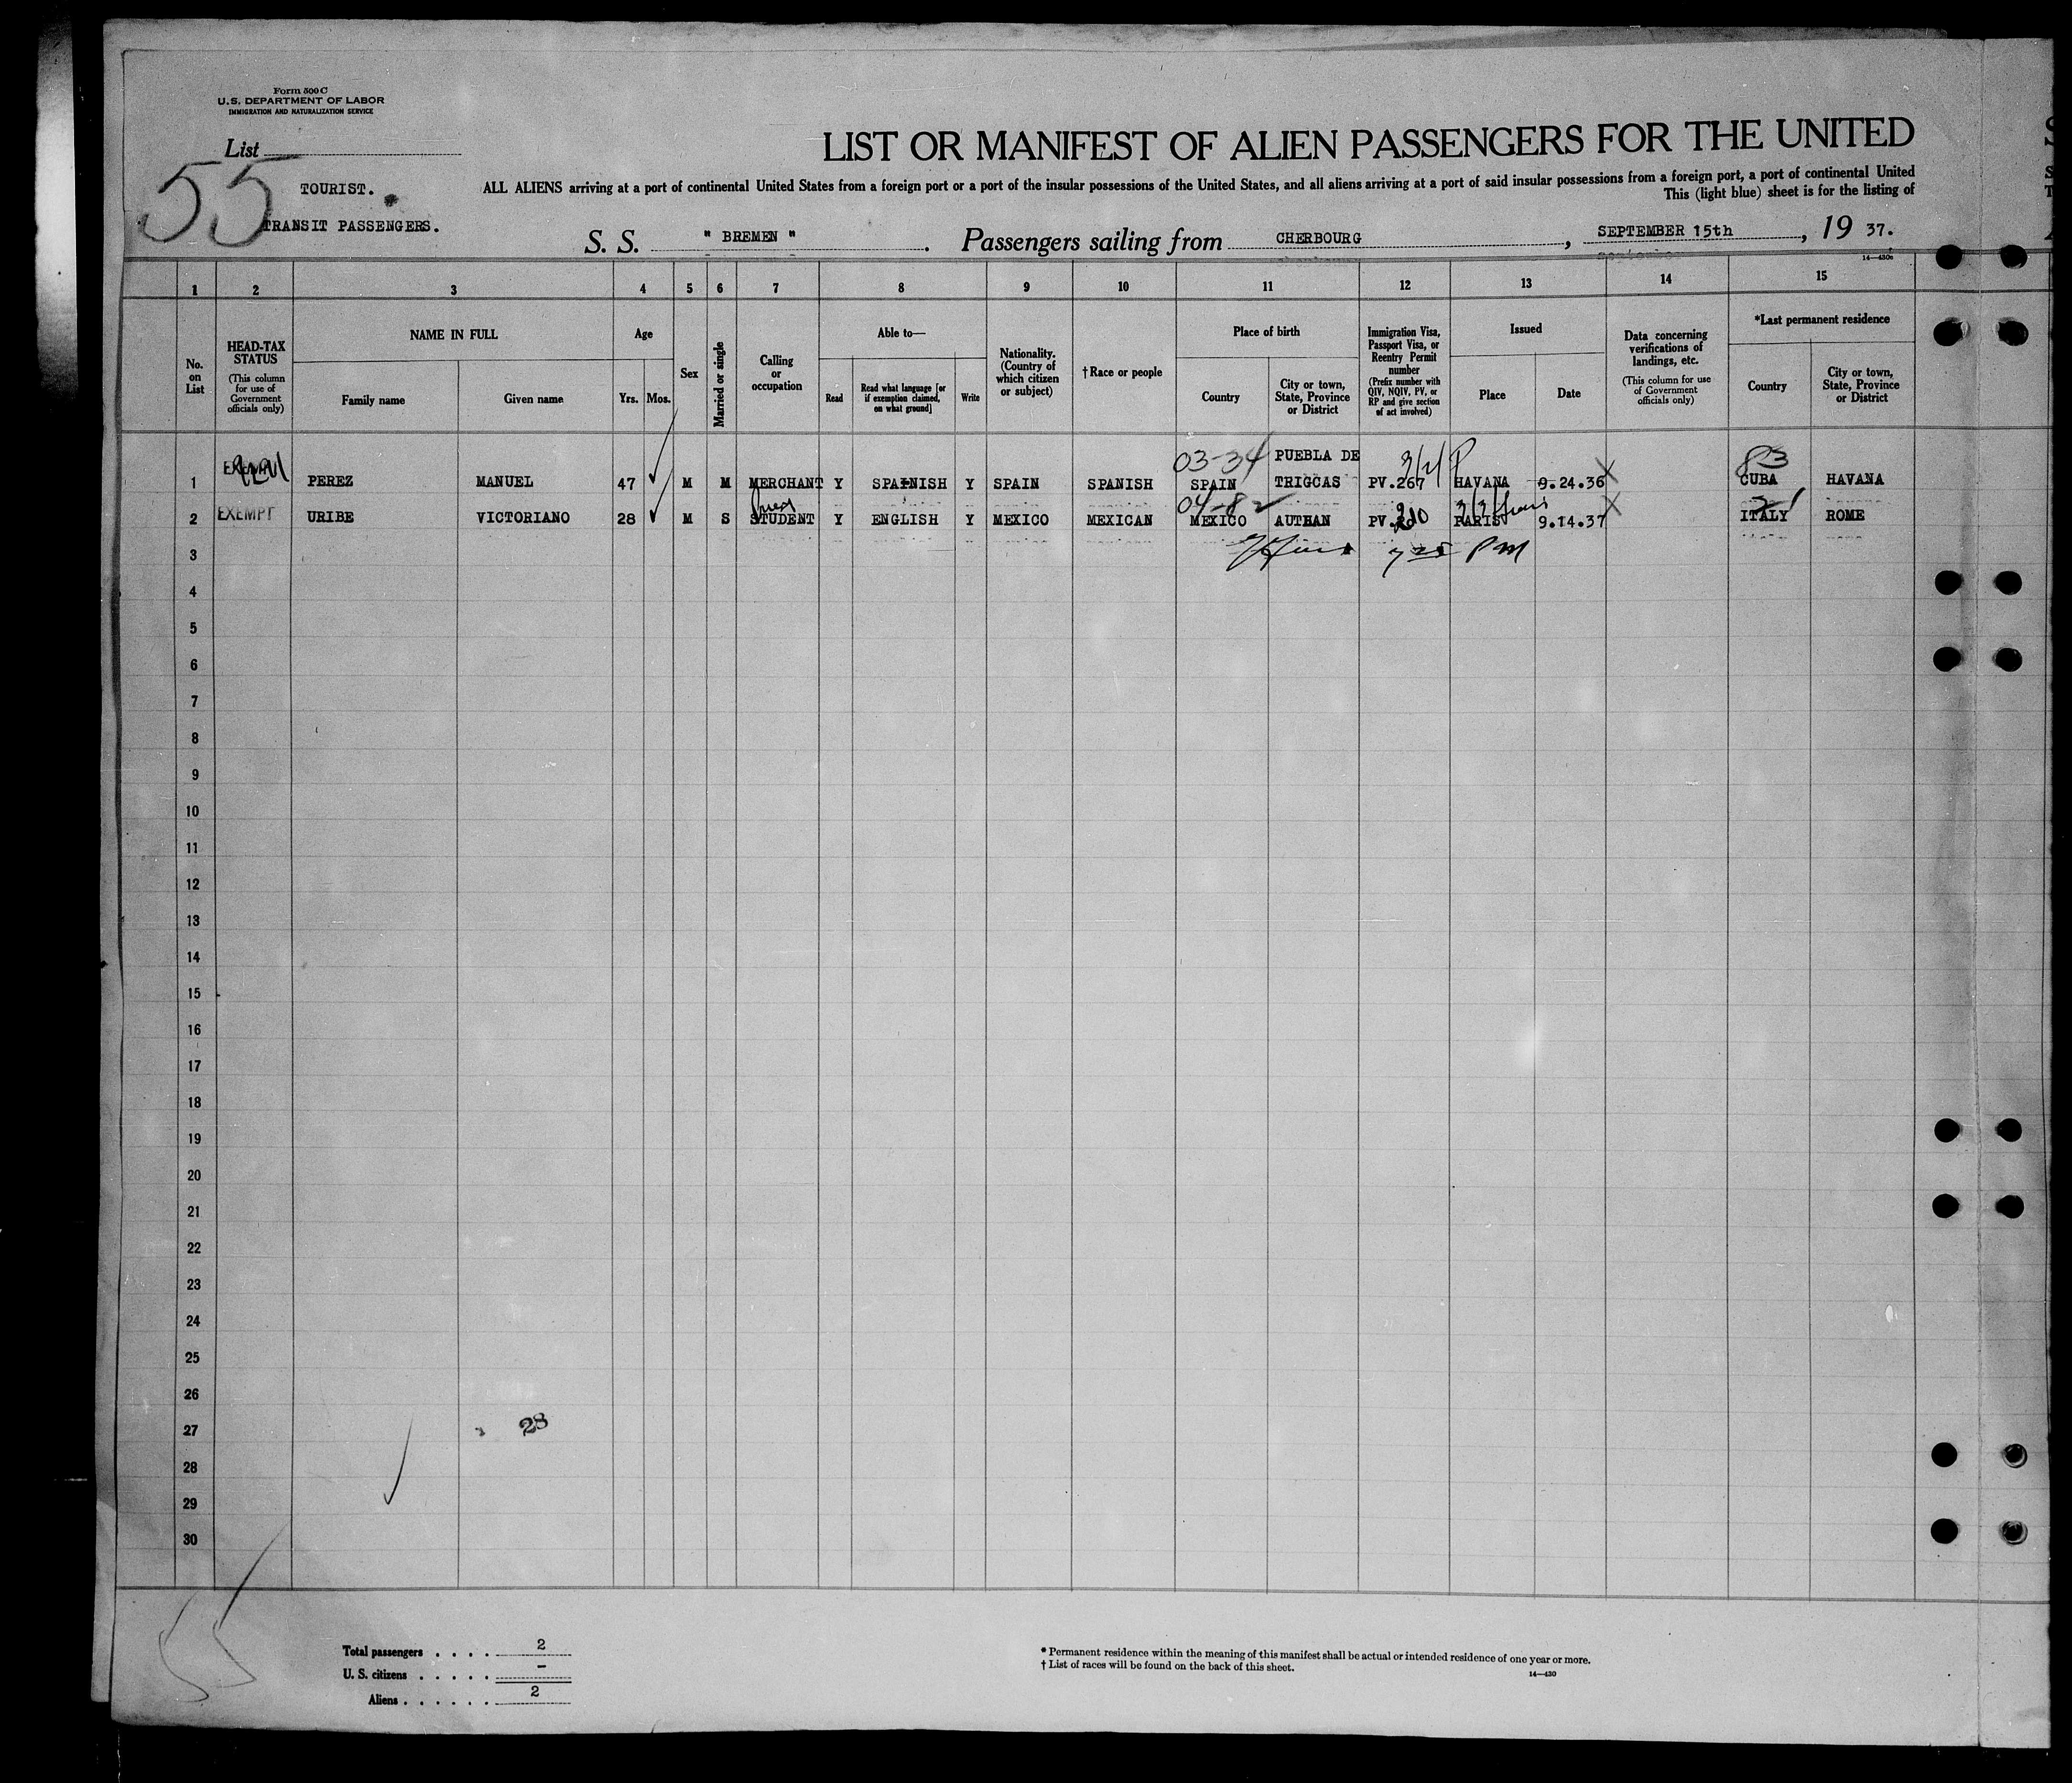 Form 500 C
U.S. DEPARTMENT OF LABOR
IMMIGRATION AND NATURALIZATION SERVICE
List
55
TOURIST.
TRANSIT PASSENGERS.
LIST OR MANIFEST OF ALIEN PASSENGERS FOR THE UNITED
ALL ALIENS arriving at a port of continental United States from a foreign port or a port of the insular possessions of the United States, and all aliens arriving at a port of said insular possessions from a foreign port, a port of continental United
This (light blue) sheet is for the listing of
S. S. " BREMEN ". Passengers sailing from CHERBOURG, SEPTEMBER 15th, 19 37.
1 2 3 4 5 6 7 8 9 10 11 12 13 14 15
No. on List
HEAD-TAX STATUS
(This column for use of Government officials only)
NAME IN FULL
Family name
Given name
Age
Yrs. Mos.
Sex
Married or single
Calling or occupation
Able to—
Read
Read what language [or if exemption claimed, on what ground]
Write
Nationality. (Country of which citizen or subject)
† Race or people
Place of birth
Country
City or town, State, Province or District
Immigration Visa, Passport Visa, or Reentry Permit number
(Prefix number with QIV, NQIV, PV, or RP and give section of act involved)
Issued
Place
Date
Data concerning verifications of landings, etc.
(This column for use of Government officials only)
*Last permanent residence
Country
City or town, State, Province or District
03-34 PUEBLA DE 83
1 PEREZ MANUEL 47 M M MERCHANT Y SPANISH Y SPAIN SPANISH SPAIN TRIGCAS PV.267 HAVANA 9.24.36 CUBA HAVANA
04-82
2 EXEMPT URIBE VICTORIANO 28 M S STUDENT Y ENGLISH Y MEXICO MEXICAN MEXICO AUTHAN PV. PARIS 9.14.37 ITALY ROME
3 7 25 PM
4
5
6
7
8
9
10
11
12
13
14
15
16
17
18
19
20
21
22
23
24
25
26
27 28
28
29
30
55
Total passengers . . . . 2
U. S. citizens . . . . . –
Aliens . . . . . . 2
* Permanent residence within the meaning of this manifest shall be actual or intended residence of one year or more.
† List of races will be found on the back of this sheet.
14—430